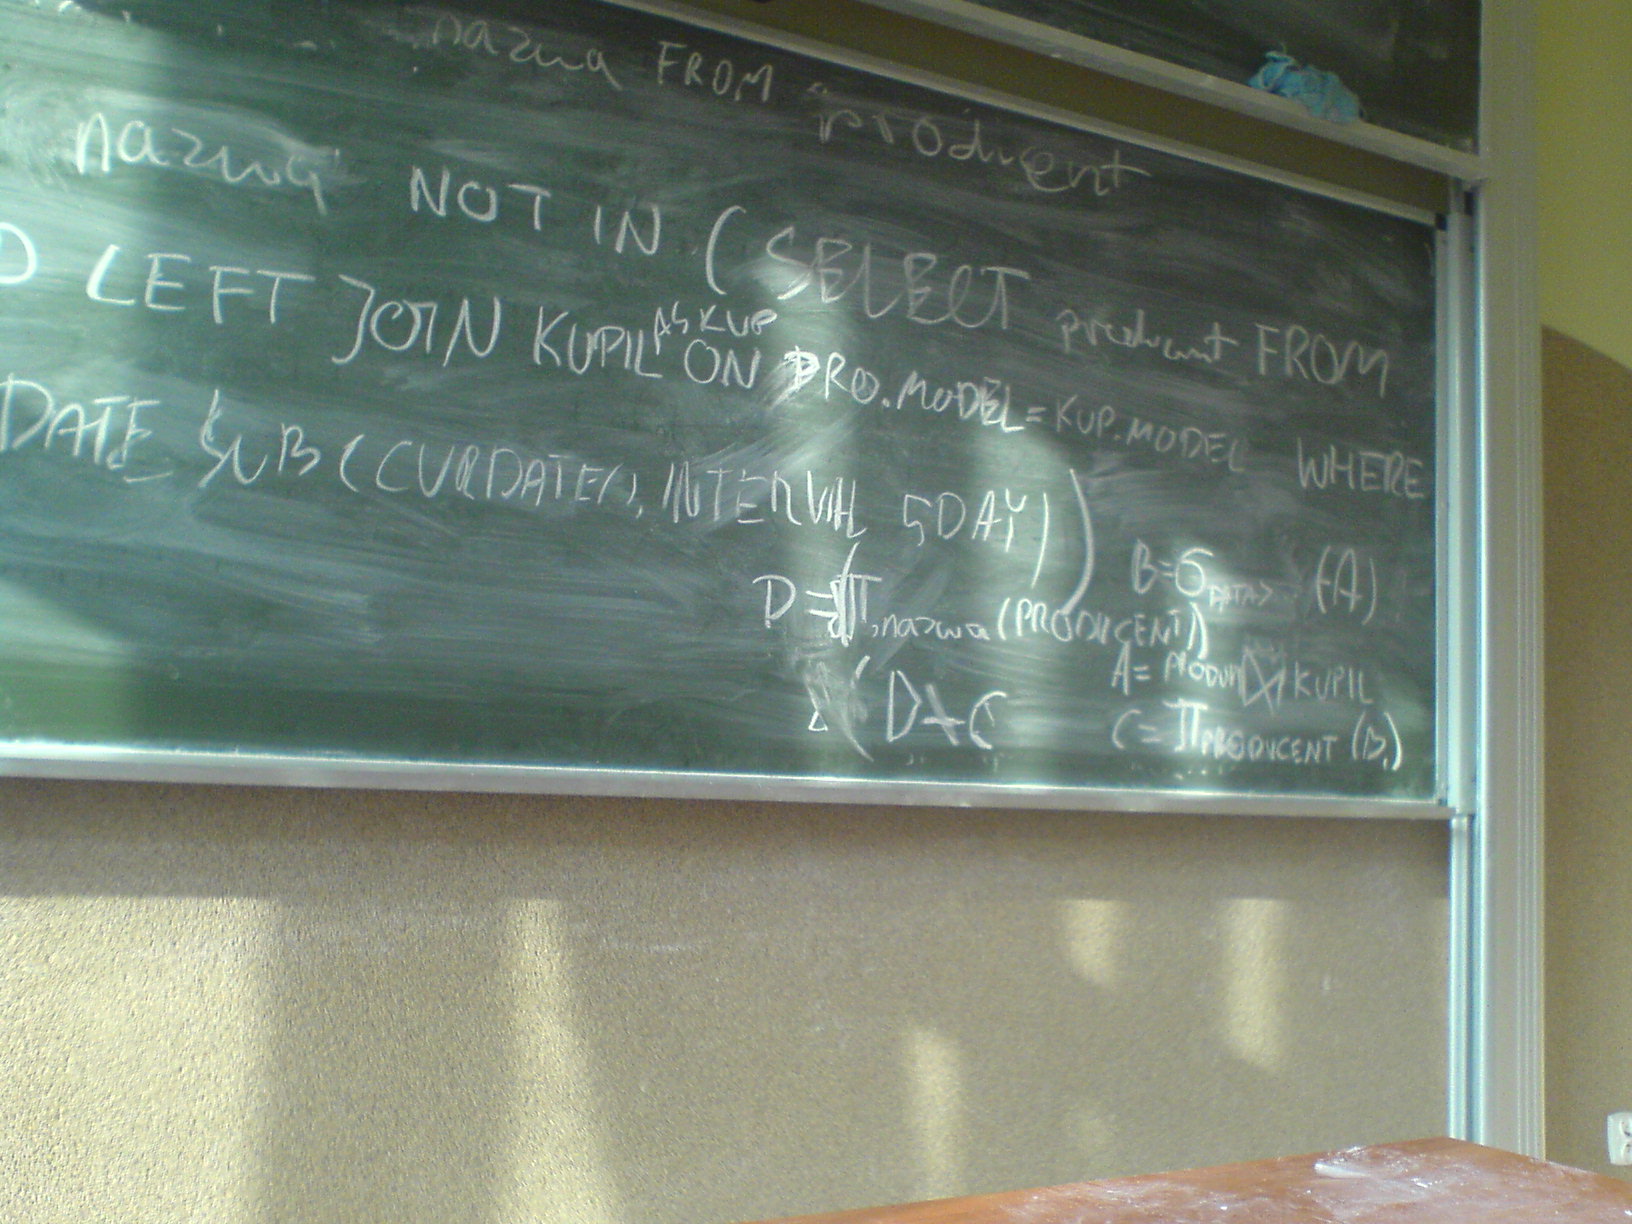 nazwa FROM producent
nazwa NOT IN ( SELECT producent FROM
D LEFT JOIN KUPIL AS KUP ON PRO.MODEL = KUP.MODEL WHERE
DATE_SUB (CURDATE(), INTERVAL 5 DAY ) )
B = σ DATA> (A)
D = π nazwa (PRODUCENT)
A = PRODUKT ⋈ KUPIL
D \ C
C = π PRODUCENT (B)